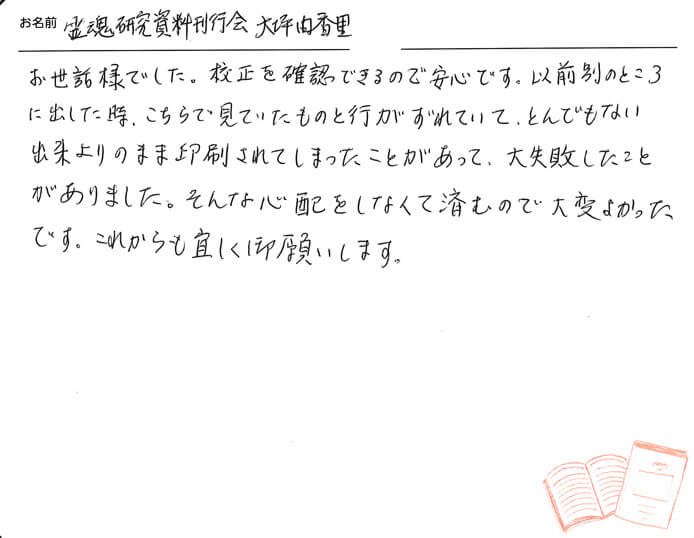 お名前 霊魂研究資料刊行会 大坪由香里
お世話様でした。校正を確認できるので安心です。以前別のところ
に出した時、こちらで見ていたものと行がずれていて、とんでもない
出来よりのまま印刷されてしまったことがあって、大失敗したこと
がありました。そんな心配をしなくて済むので大変よかった
です。これからも宜しく御願いします。